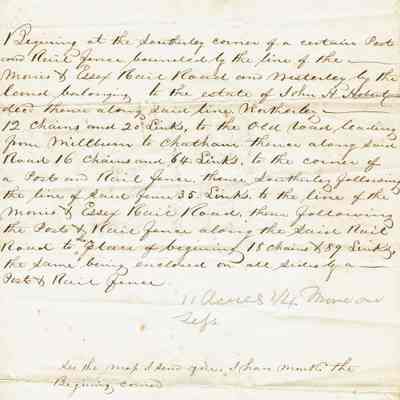 Begining at the Southerley corner of a certain Post
and Rail fence bounded by the line of the
Morris & Essex Rail Road and Westerley by the
land belonging to the estate of John H.
dead thence along said line Northerley
12 Chains and 20 Links, to the Old road leading
from Millburn to Chatham thence along said
Road 16 Chains and 64 Links, to the corner of
a Post and Rail fence, thence Southerley following
the line of said fence 35 Links to the line of the
Morris & Essex Rail Road, thence following
the Post & Rail fence along the Said Rail
Road to the place of begining 18 Chains & 89 Links,
the same being enclosed on all sides by a
Post & Rail fence
11 Acres 1/4 More or
Less
See the map I send you I have mark the
Begining corner